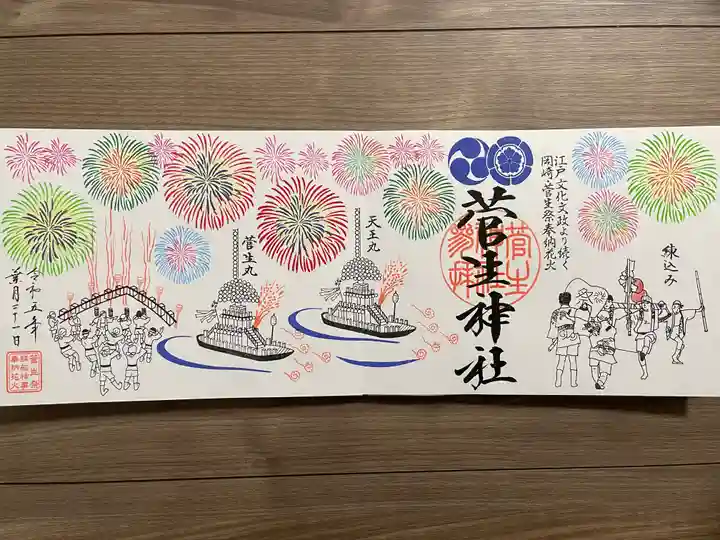 練込み
江戸文化文政より続く
岡崎・菅生祭奉納花火
菅生神社
天王丸
菅生丸
令和五年
葉月二十一日
菅生祭
奉納花火